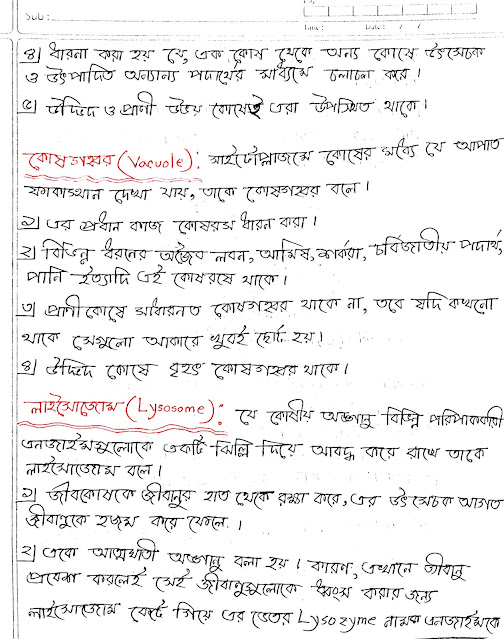 Sub:
Day
Time: Date: / /
৪| ধারনা করা হয় যে, এক কোষ থেকে অন্য কোষে উৎসেচক
ও উৎপাদিত অন্যান্য পদার্থের মাধ্যমে চলাচল করে।
৫| উদ্ভিদ ও প্রাণী উভয় কোষেই এরা উপস্থিত থাকে।
কোষগহ্বর (Vacuole): সাইটোপ্লাজমে কোষের মধ্যে যে আপাত
ফাকাস্থান দেখা যায়, তাকে কোষগহ্বর বলে।
১| এর প্রধান কাজ কোষরস ধারন করা।
২| বিভিন্ন ধরনের অজৈব লবন, আমিষ, শর্করা, চর্বিজাতীয় পদার্থ,
পানি ইত্যাদি এই কোষরসে থাকে।
৩| প্রাণী কোষে সাধারনত কোষগহ্বর থাকে না, তবে যদি কখনো
থাকে সেগুলো আকারে খুবই ছোট হয়।
৪| উদ্ভিদ কোষে বৃহৎ কোষগহ্বর থাকে।
লাইসোজোম (Lysosome): যে কোষীয় অঙ্গাণু বিভিন্ন পরিপাককারী
এনজাইমগুলোকে একটি ঝিল্লি দিয়ে আবদ্ধ করে রাখে তাকে
লাইসোজোম বলে।
১| জীবকোষকে জীবানুর হাত থেকে রক্ষা করে, এর উৎসেচক আগত
জীবানুকে হজম করে ফেলে।
২| একে আত্মঘাতী অঙ্গাণু বলা হয়। কারণ, এখানে জীবানু
প্রবেশ করলেই সেই জীবানুগুলোকে ধ্বংস করার জন্য
লাইসোজোম ফেটে গিয়ে এর ভেতর Lysozyme নামক এনজাইমকে